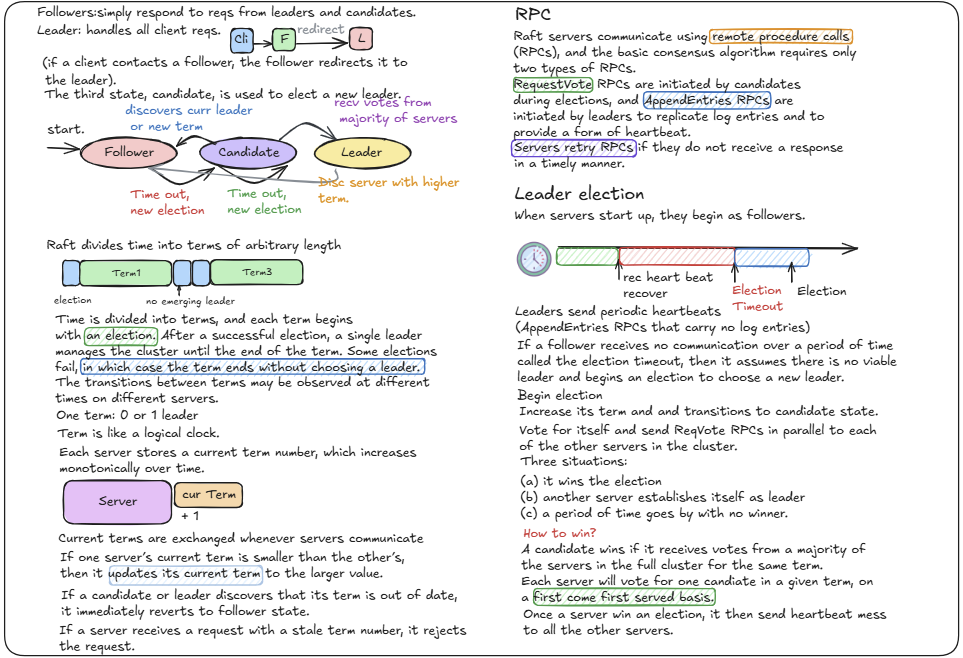 Followers:simply respond to reqs from leaders and candidates.
Leader: handles all client reqs.
Cli
F
redirect
L
(if a client contacts a follower, the follower redirects it to
the leader).
The third state, candidate, is used to elect a new leader.
discovers curr leader
or new term
recv votes from
majority of servers
start.
Follower
Candidate
Leader
Time out,
new election
Time out,
new election
Disc server with higher
term.
Raft divides time into terms of arbitrary length
Term1
Term3
election
no emerging leader
Time is divided into terms, and each term begins
with an election. After a successful election, a single leader
manages the cluster until the end of the term. Some elections
fail, in which case the term ends without choosing a leader.
The transitions between terms may be observed at different
times on different servers.
One term: 0 or 1 leader
Term is like a logical clock.
Each server stores a current term number, which increases
monotonically over time.
Server
cur Term
+ 1
Current terms are exchanged whenever servers communicate
If one server's current term is smaller than the other's,
then it updates its current term to the larger value.
If a candidate or leader discovers that its term is out of date,
it immediately reverts to follower state.
If a server receives a request with a stale term number, it rejects
the request.
RPC
Raft servers communicate using remote procedure calls
(RPCs), and the basic consensus algorithm requires only
two types of RPCs.
RequestVote RPCs are initiated by candidates
during elections, and AppendEntries RPCs are
initiated by leaders to replicate log entries and to
provide a form of heartbeat.
Servers retry RPCs if they do not receive a response
in a timely manner.
Leader election
When servers start up, they begin as followers.
rec heart beat
recover
Election
Timeout
Election
Leaders send periodic heartbeats
(AppendEntries RPCs that carry no log entries)
If a follower receives no communication over a period of time
called the election timeout, then it assumes there is no viable
leader and begins an election to choose a new leader.
Begin election
Increase its term and and transitions to candidate state.
Vote for itself and send ReqVote RPCs in parallel to each
of the other servers in the cluster.
Three situations:
(a) it wins the election
(b) another server establishes itself as leader
(c) a period of time goes by with no winner.
How to win?
A candidate wins if it receives votes from a majority of
the servers in the full cluster for the same term.
Each server will vote for one candiate in a given term, on
a first come first served basis.
Once a server win an election, it then send heartbeat mess
to all the other servers.